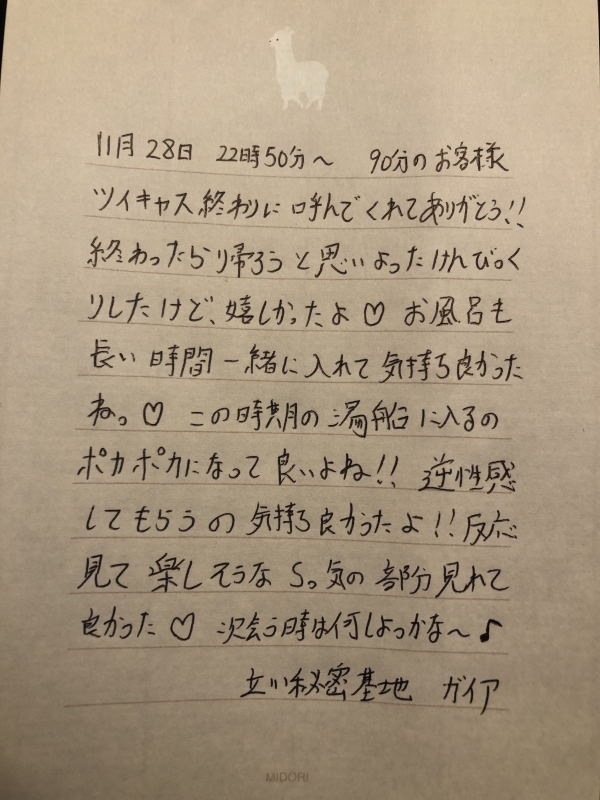 11月28日 22時50分〜 90分のお客様
ツイキャス終わりに呼んでくれてありがとう!!
終わったらり帰ろうと思いよったけんびっく
りしたけど、嬉しかったよ♡ お風呂も
長い時間一緒に入れて気持ち良かった
ねっ♡ この時期の湯船に入るの
ポカポカになって良いよね!! 逆性感
してもらうの気持ち良かったよ!! 反応
見て楽しそうなSっ気の部分見れて
良かった♡ 次会う時は何しよっかな〜♪
立川秘密基地 ガイア
MIDORI